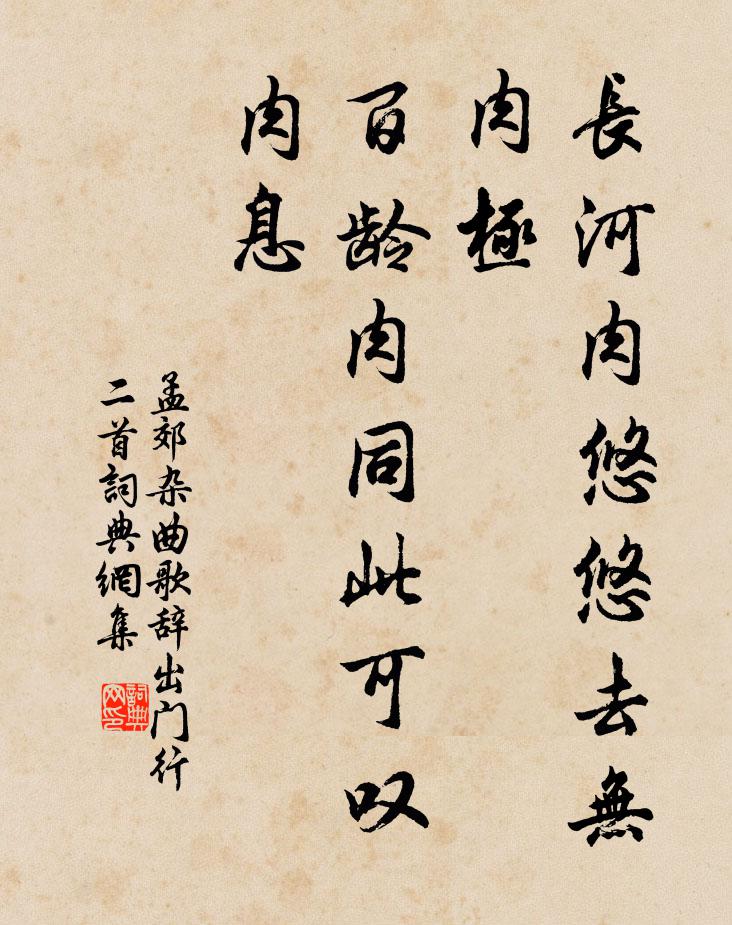 長河肉悠悠去無
肉極
百龄肉同此可叹
肉息
孟郊杂曲歌辞出门行
二首詞典網集
詞典
网印